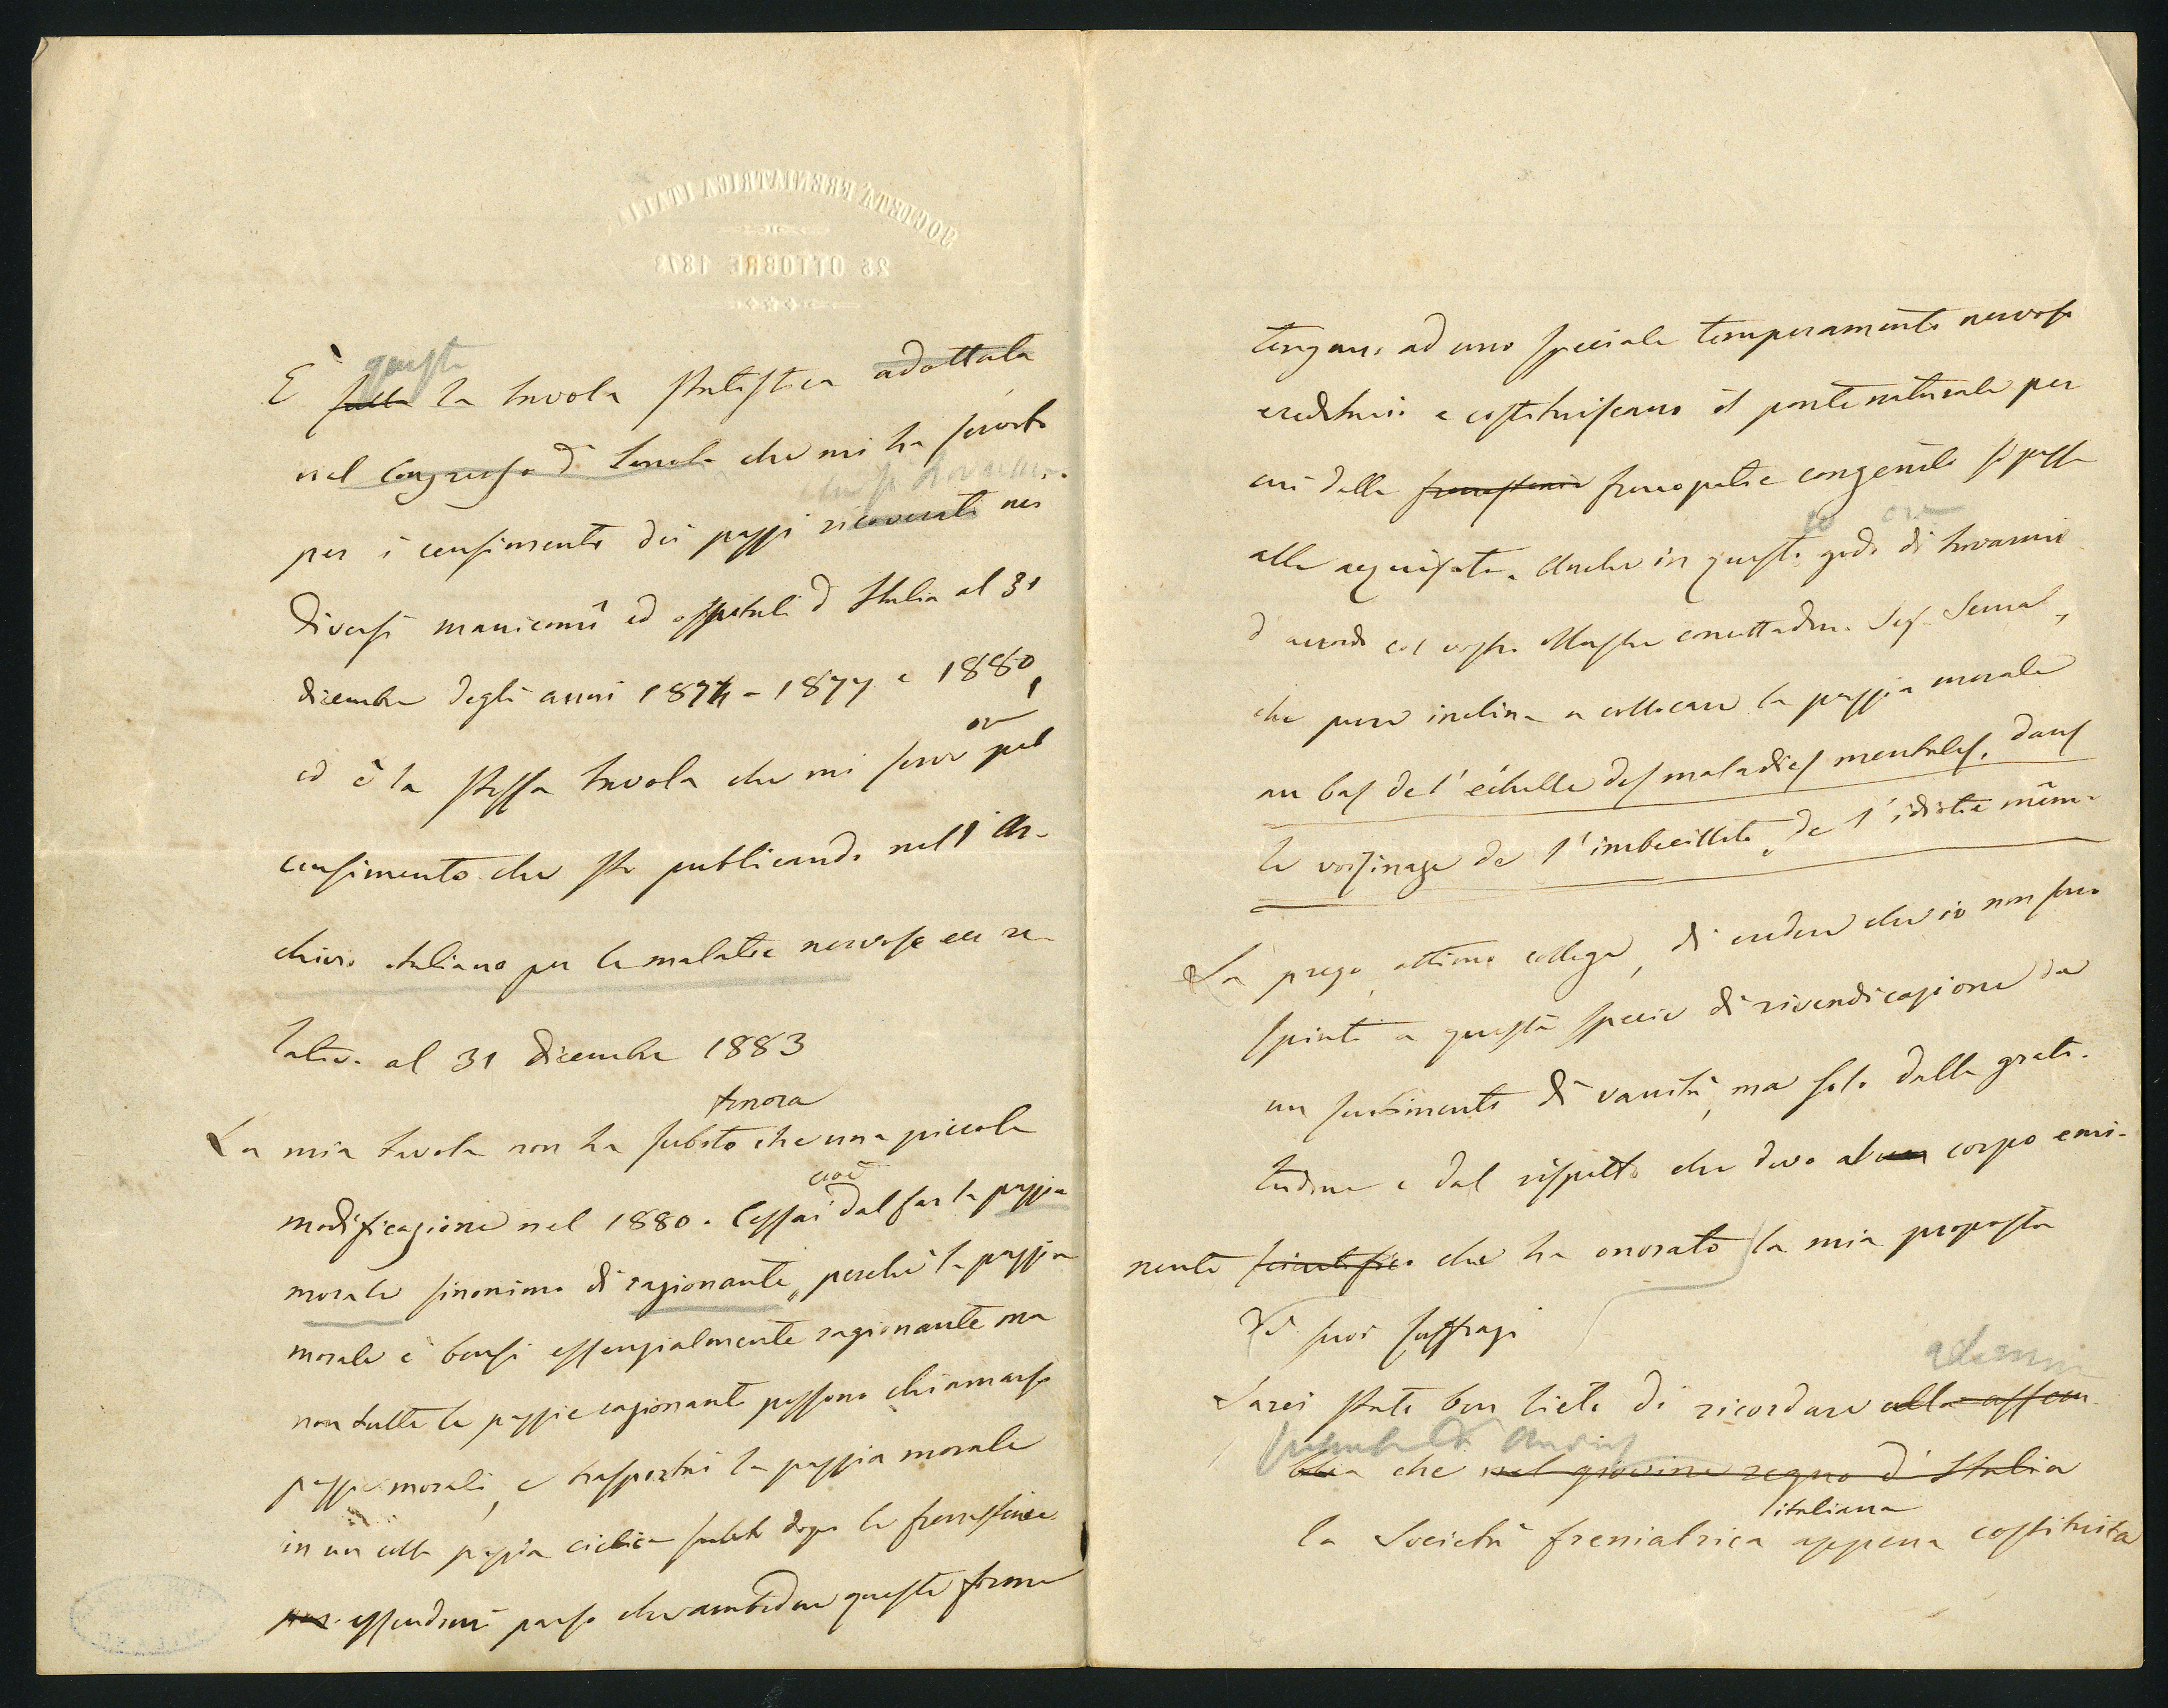 SOCIETÀ FRENIATRICA ITALI
26 OTTOBRE 1873
questa
È fatta la tavola statistica adottata
nel Congresso di che mi ha servito
che si trovano
per i censimento dei pazzi ricoverati nei
diversi manicomî ed ospitali d Italia al 31
dicembre degli anni 1874 - 1877 e 1880,
or
ed è la stessa tavola che mi serve pel
censimento che sto publicando nell'Ar-
chivio italiano per le malatie nervose ecc re-
lativo al 31 dicembre 1883
finora
La mia tavola non ha subito che una piccola
cioè
modificazione nel 1880. Cessai dal far la pazzia
morale sinonimo di ragionante, perchè la pazzia
morale è bensì essenzialmente ragionante ma
non tutte le pazzie ragionanti possono chiamarsi
pazzie morali, e trasportai la pazzia morale
in un colla pazzia ciclica subito dopo le frenastenie
essendomi parso che ambedue queste forme
tengano ad uno speciale temperamento nervoso
ereditario e costituiscano il ponte naturale per
cui dalle frenastenie frenopatie congenite si passa
alle acquisite. Anche in questo godo di trovarmi
d'accordo col vostro illustre concittadino Sig. Semal,
che pure inclina a collocare la pazzia morale
au bas de l'échelle des maladies mentales, dans
le voisinage de l'imbecillité, de l'idiotie même
La prego, ottimo collega, di credere che io non sono
spinto a questa specie di rivendicazione da
un sentimento di vanità, ma solo dalla grati-
tudine e dal rispetto che devo al corpo emi-
nente scientifico che ha onorato la mia proposta
di suoi suffragi
Sarei stato ben lieto di ricordare alla assem-
blea che nel giovine regno d'Italia
italiana
la Società freniatrica appena costituita